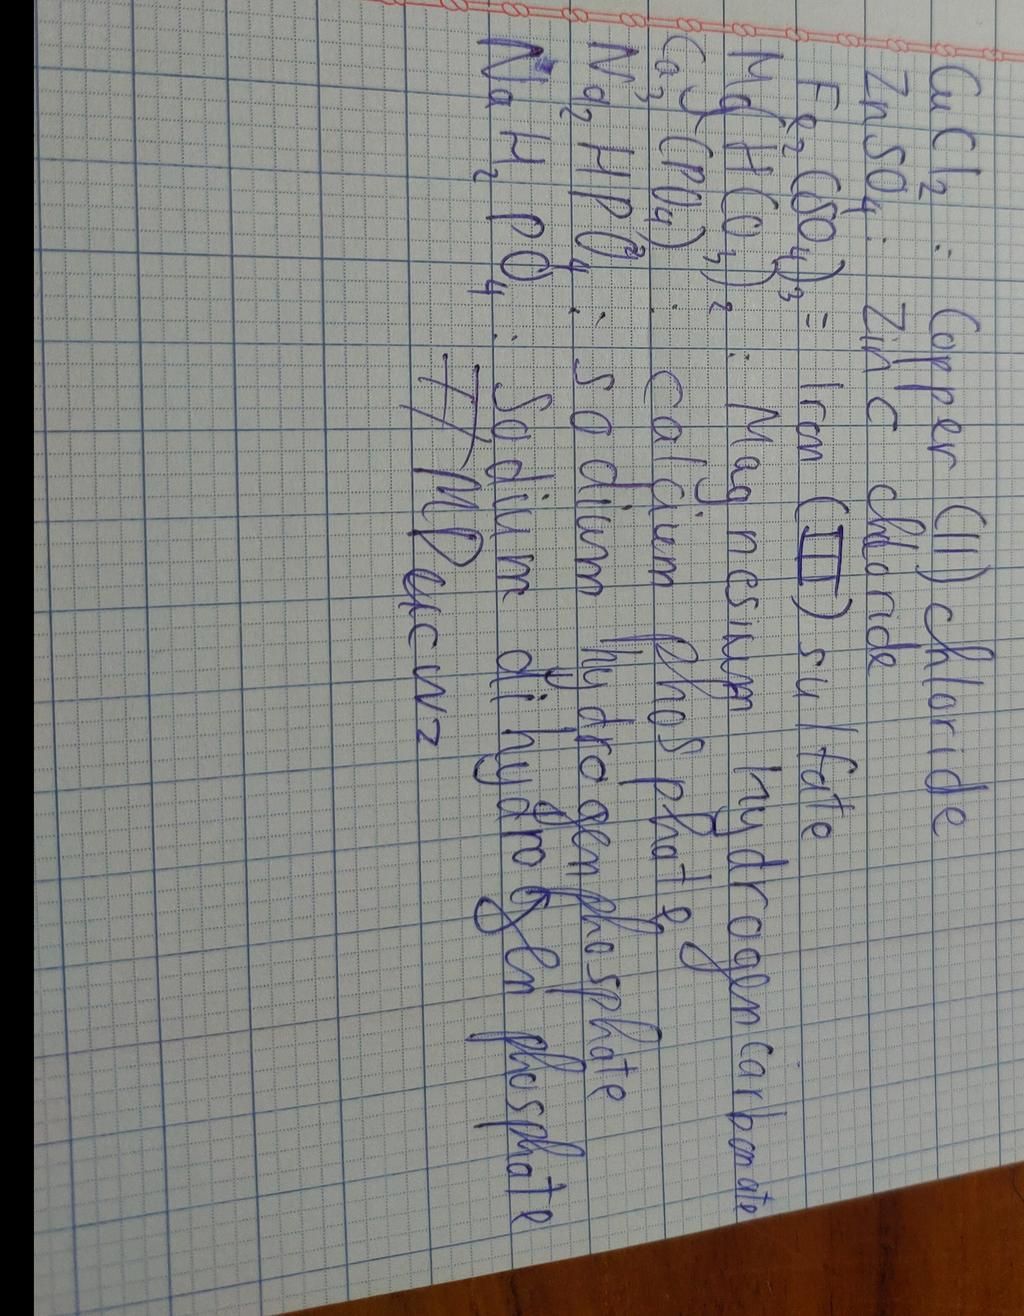 CuCl₂ : Copper (II) chloride
ZnSO₄ : Zinc chloride
Fe₂(SO₄)₃ = Iron (III) sulfate
Mg(HCO₃)₂ : Magnesium hydrogencarbonate
Ca₃(PO₄)₂ : Calcium phosphate
Na₂HPO₄ : Sodium hydrogenphosphate
NaH₂PO₄ : Sodium dihydrogen phosphate